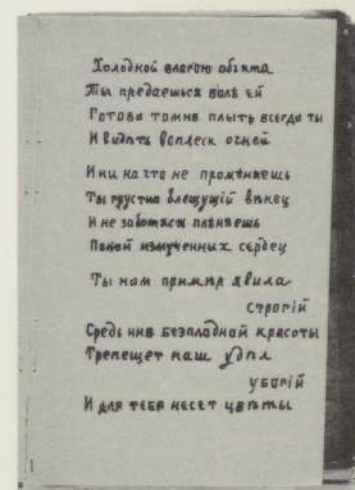 Холодной влагою объята
Ты предаешься волѣ ей
Готова томно плыть всегда ты
И видѣть всплеск огней
И ни на что не промѣняешь
Ты грустно блещущій вѣнец
И не заботясь плѣняешь
Покой измученных сердец
Ты нам примѣр явила
строгій
Средь нив безплодной красоты
Трепещет наш удѣл
убогій
И для тебя несет цвѣты